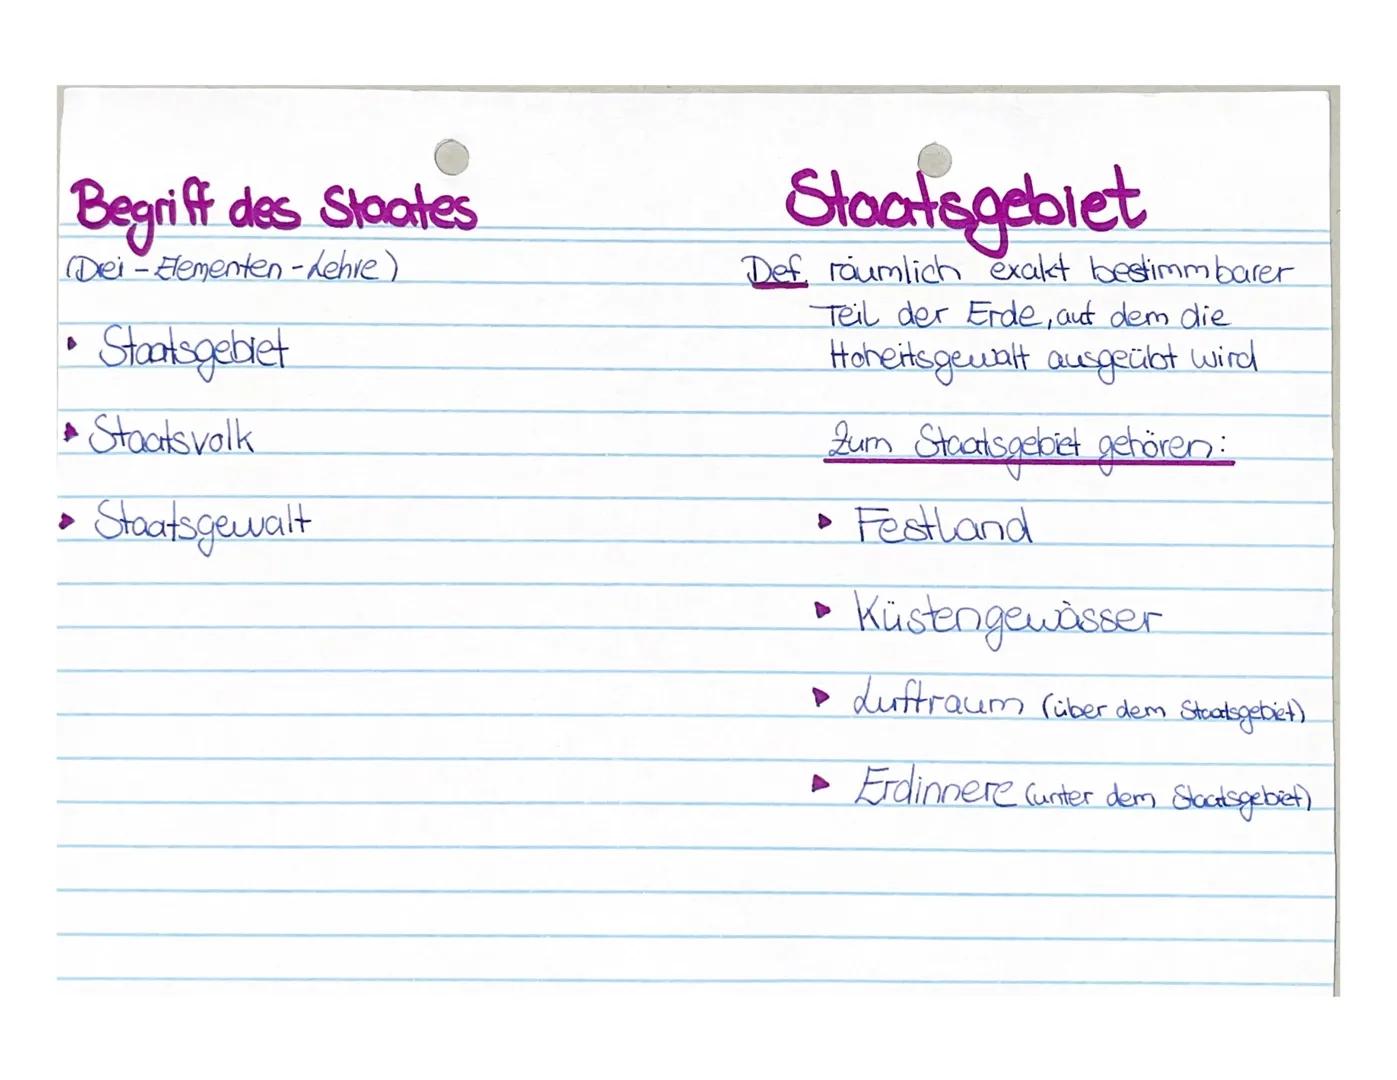 Begriff des Staates
(Drei-Elementen-Lehre)
Staatsgebiet
Staatsvolk
Staatsgewalt
Staatsgebiet
Def. räumlich exakt bestimmbarer
Teil der Erde, auf dem die
Hoheitsgewalt ausgeübt wird
Zum Staatsgebiet gehören:
Festland
Küstengewässer
Luftraum (über dem Staatsgebiet)
Erdinnere (unter dem Staatsgebiet)